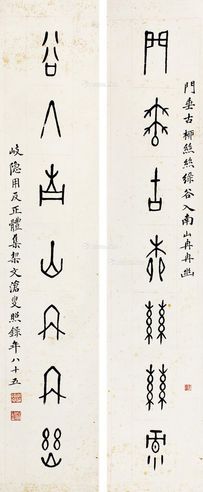 門垂古柳絲絲綠
谷入南山冉冉幽
門垂古柳絲絲綠谷入南山冉冉幽
岐隐用反正體集契文滄叟照錄年八十五